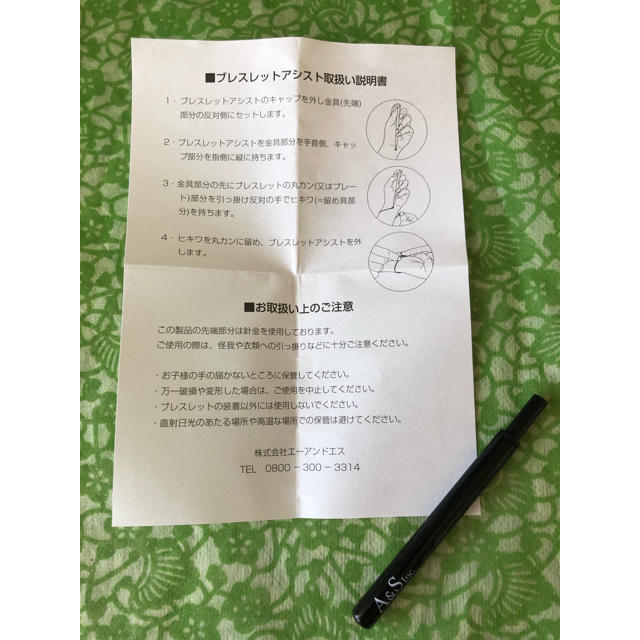 ■ブレスレットアシスト取扱い説明書
1・ブレスレットアシストのキャップを外し金具(先端)
部分の反対側にセットします。
2・ブレスレットアシストを金具部分を手首側、キャッ
プ部分を指側に縦に持ちます。
3・金具部分の先にブレスレットの丸カン(又はプレー
ト)部分を引っ掛け反対の手でヒキワ(=留め具部
分)を持ちます。
4・ヒキワを丸カンに留め、ブレスレットアシストを外
します。
■お取扱い上のご注意
この製品の先端部分は針金を使用しております。
ご使用の際は、怪我や衣類への引っ掛りなどに十分ご注意ください。
・お子様の手の届かないところに保管してください。
・万一破損や変形した場合は、ご使用を中止してください。
・ブレスレットの装着以外には使用しないでください。
・直射日光のあたる場所や高温な場所での保管は避けてください。
株式会社エーアンドエス
TEL 0800－300－3314
A&S Inc.